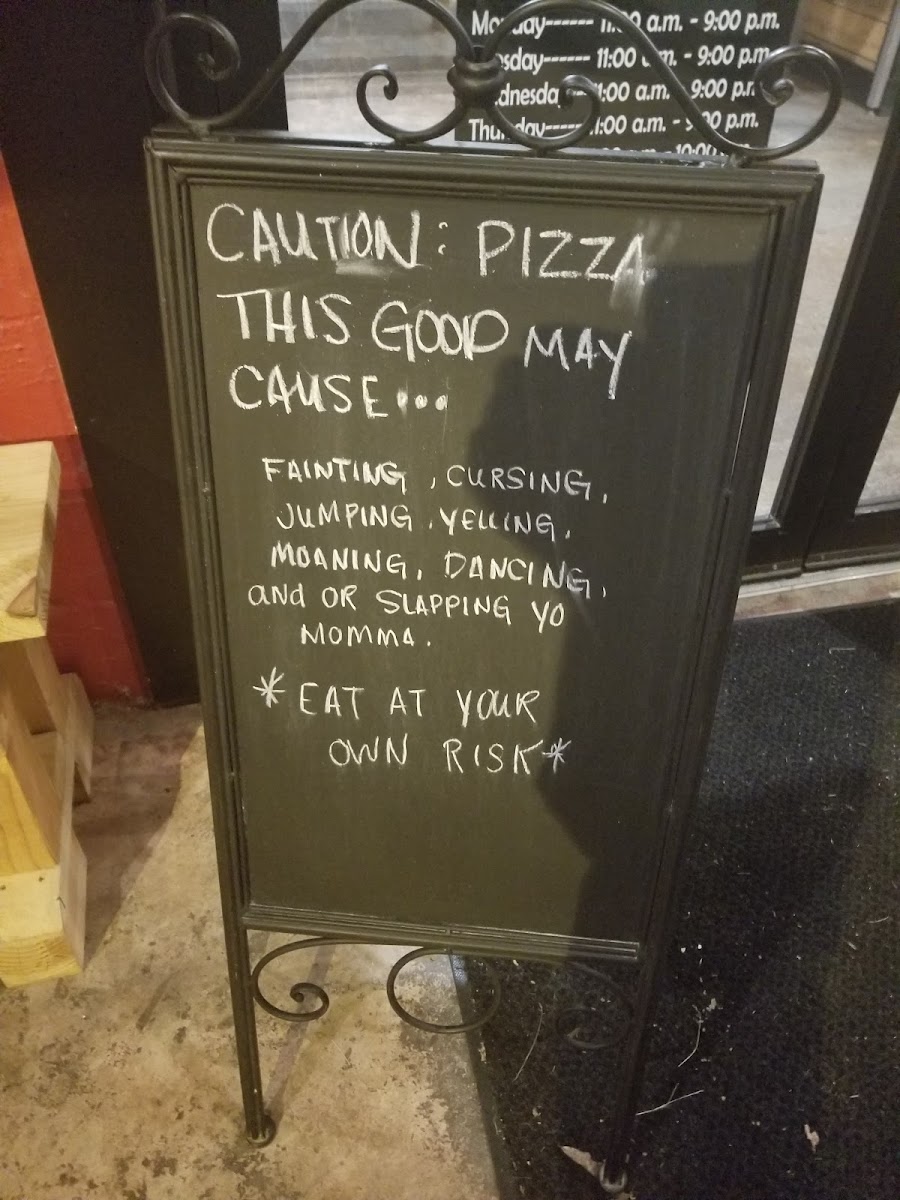 Monday------ 11:00 a.m. - 9:00 p.m.
------ 11:00 a.m. - 9:00 p.m.
a.m. - 9:00 p.m.
Thursday----- 11:00 a.m. - 9:00 p.m.
CAUTION: PIZZA
THIS GOOD MAY
CAUSE...
FAINTING, CURSING,
JUMPING, YELLING,
MOANING, DANCING,
and OR SLAPPING YO
MOMMA.
*EAT AT YOUR
OWN RISK*